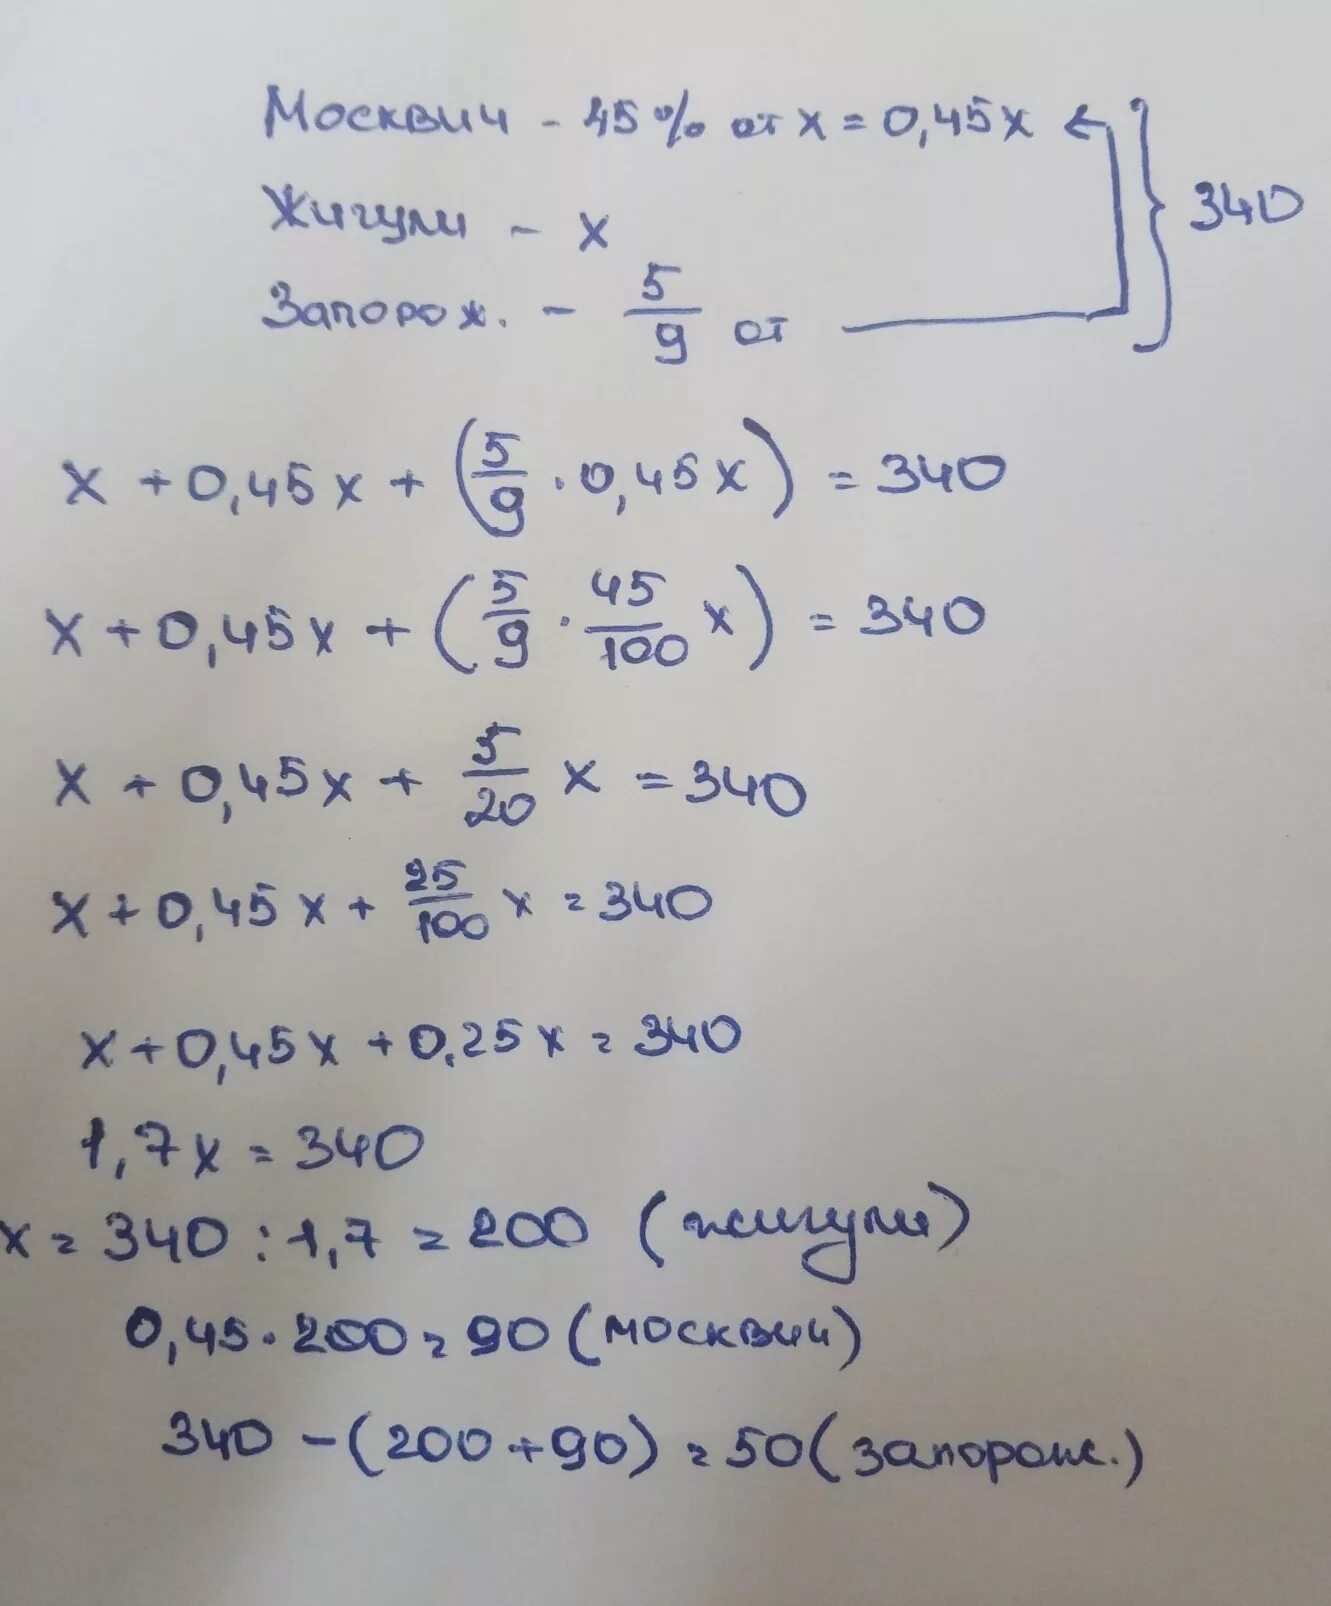 Москвич - 45% от х = 0,45х
Жигули - х
340
Запорож. - 5/9 от
х + 0,45х + (5/9 · 0,45х) = 340
х + 0,45х + (5/9 · 45/100 х) = 340
х + 0,45х + 5/20 х = 340
х + 0,45х + 25/100 х = 340
х + 0,45х + 0,25х = 340
1,7х = 340
х = 340 : 1,7 = 200 (жигули)
0,45 · 200 = 90 (москвич)
340 - (200 + 90) = 50 (запорож.)